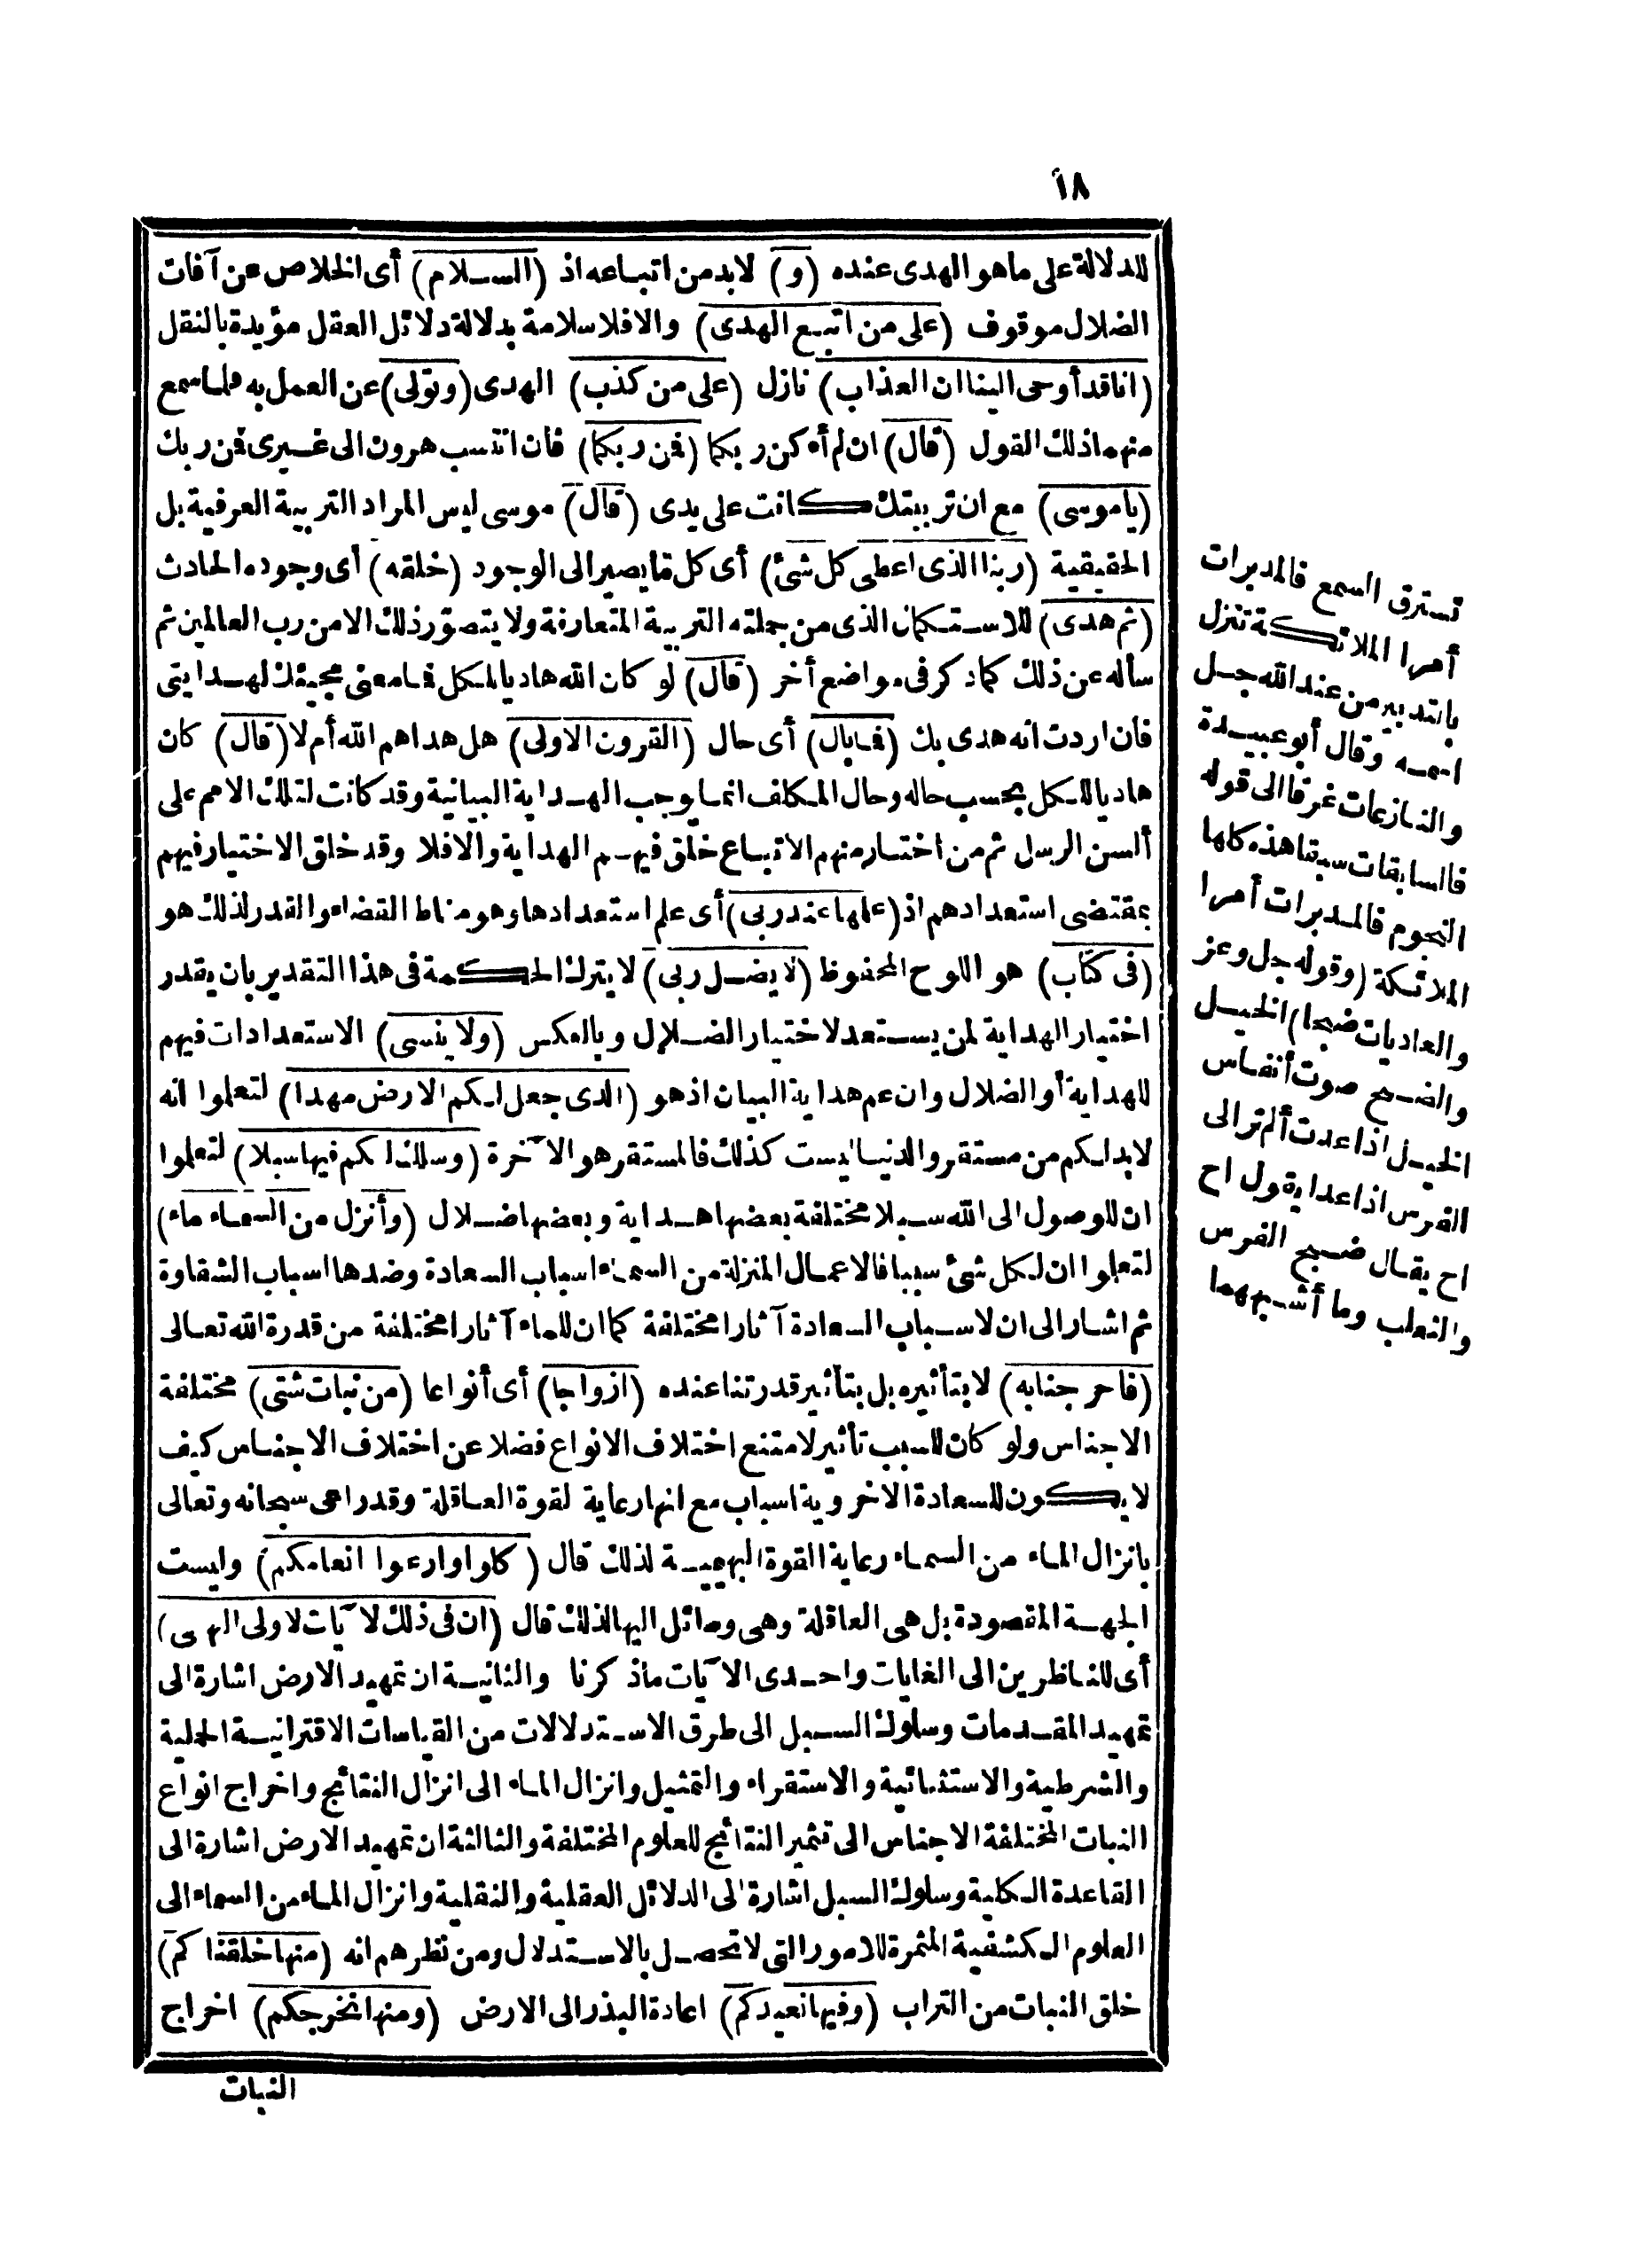 ١٨
للدلالة على ما هو الهدى عنده (و) لابد من اتباعه اذ (السلام) أى الخلاص عن آفات
الضلال موقوف (على من اتبع الهدى) والا فلا سلامة بدلالة دلائل العقل مؤيدة بالنقل
(انا قد أوحى الينا ان العذاب) نازل (على من كذب) الهدى (وتولى) عن العمل به فلما سمع
منهما ذلك القول (قال) ان لم أكن ربكما (فمن ربكما) فان انتسب هرون الى غيرى فمن ربك
(ياموسى) مع ان تربيتك كانت على يدى (قال) موسى ليس المراد التربية العرفية بل
الحقيقية (ربنا الذى اعطى كل شئ) أى كل ما يصير الى الوجود (خلقه) أى وجوده الحادث
(ثم هدى) للاستكمال الذى من جملته التربية المتعارفة ولا يتصوّر ذلك الا من رب العالمين ثم
سأله عن ذلك كما ذكر فى مواضع أخر (قال) لو كان الله هاديا لكل فما معنى مجيئك لهدايتى
فان اردت انه هدى بك (فما بال) أى حال (القرون الاولى) هل هداهم الله أم لا (قال) كان
هاديا للكل بحسب حاله وحال المكلف انما يوجب الهداية البيانية وقد كانت لتلك الامم على
ألسن الرسل ثم من اختار منهم الاتباع خلق فيهم الهداية والا فلا وقد خلق الاختيار فيهم
بمقتضى استعدادهم اذ (علمها عند ربى) أى علم استعدادها وهو مناط القضاء والقدر لذلك هو
(فى كتاب) هو اللوح المحفوظ (لا يضل ربى) لا يترك الحكمة فى هذا التقدير بان يقدر
اختيار الهداية لمن يستعد لاختيار الضلال وبالعكس (ولا ينسى) الاستعدادات فيهم
للهداية أو الضلال وان عم هداية البيان اذ هو (الذى جعل لكم الارض مهدا) لتعلموا انه
لابد لكم من مستقر والدنيا ليست كذلك فالمستقر هو الآخرة (وسلك لكم فيها سبلا) لتعلموا
ان للوصول الى الله سبلا مختلفة بعضها هداية وبعضها ضلال (وأنزل من السماء ماء)
لتعلموا ان لكل شئ سببا فالاعمال المنزلة من السماء اسباب السعادة وضدها اسباب الشقاوة
ثم اشار الى ان لاسباب السعادة آثارا مختلفة كما ان للماء آثارا مختلفة من قدرة الله تعالى
(فاخرجنا به) لا بتأثيره بل بتأثير قدرتنا عنده (ازواجا) أى أنواعا (من نبات شتى) مختلفة
الاجناس ولو كان للسبب تأثير لامتنع اختلاف الانواع فضلا عن اختلاف الاجناس كيف
لا يكون للسعادة الاخروية اسباب مع انها رعاية لقوة العاقلة وقد راعى سبحانه وتعالى
بانزال الماء من السماء رعاية القوة البهيمية لذلك قال (كلوا وارعوا انعامكم) وليست
الجهة المقصودة بل هى العاقلة وهى وسائل اليها لذلك قال (ان فى ذلك لآيات لاولى النهى)
أى للناظرين الى الغايات واحدى الآيات ما ذكرنا والثانية ان تمهيد الارض اشارة الى
تمهيد المقدمات وسلوك السبل الى طرق الاستدلالات من القياسات الاقترانية الحملية
والشرطية والاستثنائية والاستقراء والتمثيل وانزال الماء الى انزال النتائج واخراج انواع
النبات المختلفة الاجناس الى تثمير النتائج للعلوم المختلفة والثالثة ان تمهيد الارض اشارة الى
القاعدة الكلية وسلوك السبل اشارة الى الدلائل العقلية والنقلية وانزال الماء من السماء الى
العلوم الكشفية المثمرة للامور التى لا تحصل بالاستدلال ومن نظرهم انه (منها خلقناكم)
خلق النبات من التراب (وفيها نعيدكم) اعادة البذر الى الارض (ومنها نخرجكم) اخراج
النبات
تسترق السمع فالمدبرات
أمرا الملائكة تنزل
بالتدبير من عند الله جل
اسمه وقال أبو عبيدة
والنازعات غرقا الى قوله
فالسابقات سبقا هذه كلها
النجوم فالمدبرات أمرا
الملائكة (وقوله جل وعز
والعاديات ضبحا) الخيل
والضبح صوت أنفاس
الخيل اذا عدت ألم تر الى
الفرس اذا عدا يقول اح
اح يقال ضبح الفرس
والثعلب وما أشبههما